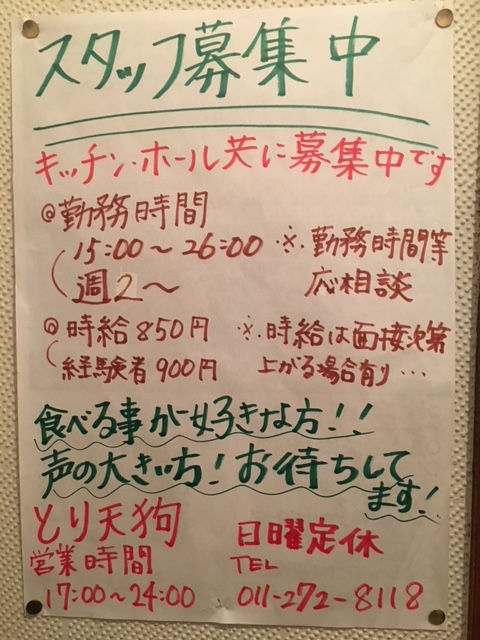 スタッフ募集中
キッチン・ホール共に募集中です
@勤務時間
15:00〜26:00 ※.勤務時間等
週2〜 応相談
@時給850円 ※.時給は面接次第
経験者900円 上がる場合有り…
食べる事が好きな方!!
声の大きい方!お待ちして
ます!
とり天狗 日曜定休
営業時間 TEL
17:00〜24:00 011-272-8118